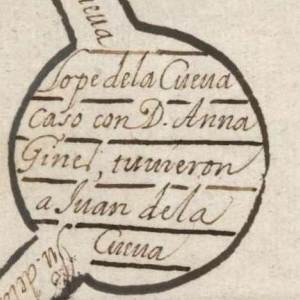 ueva
Lope dela Cueua
Caso con D. Anna
Ginel, tuuieron
a Juan dela
Cueua
Ju. dela